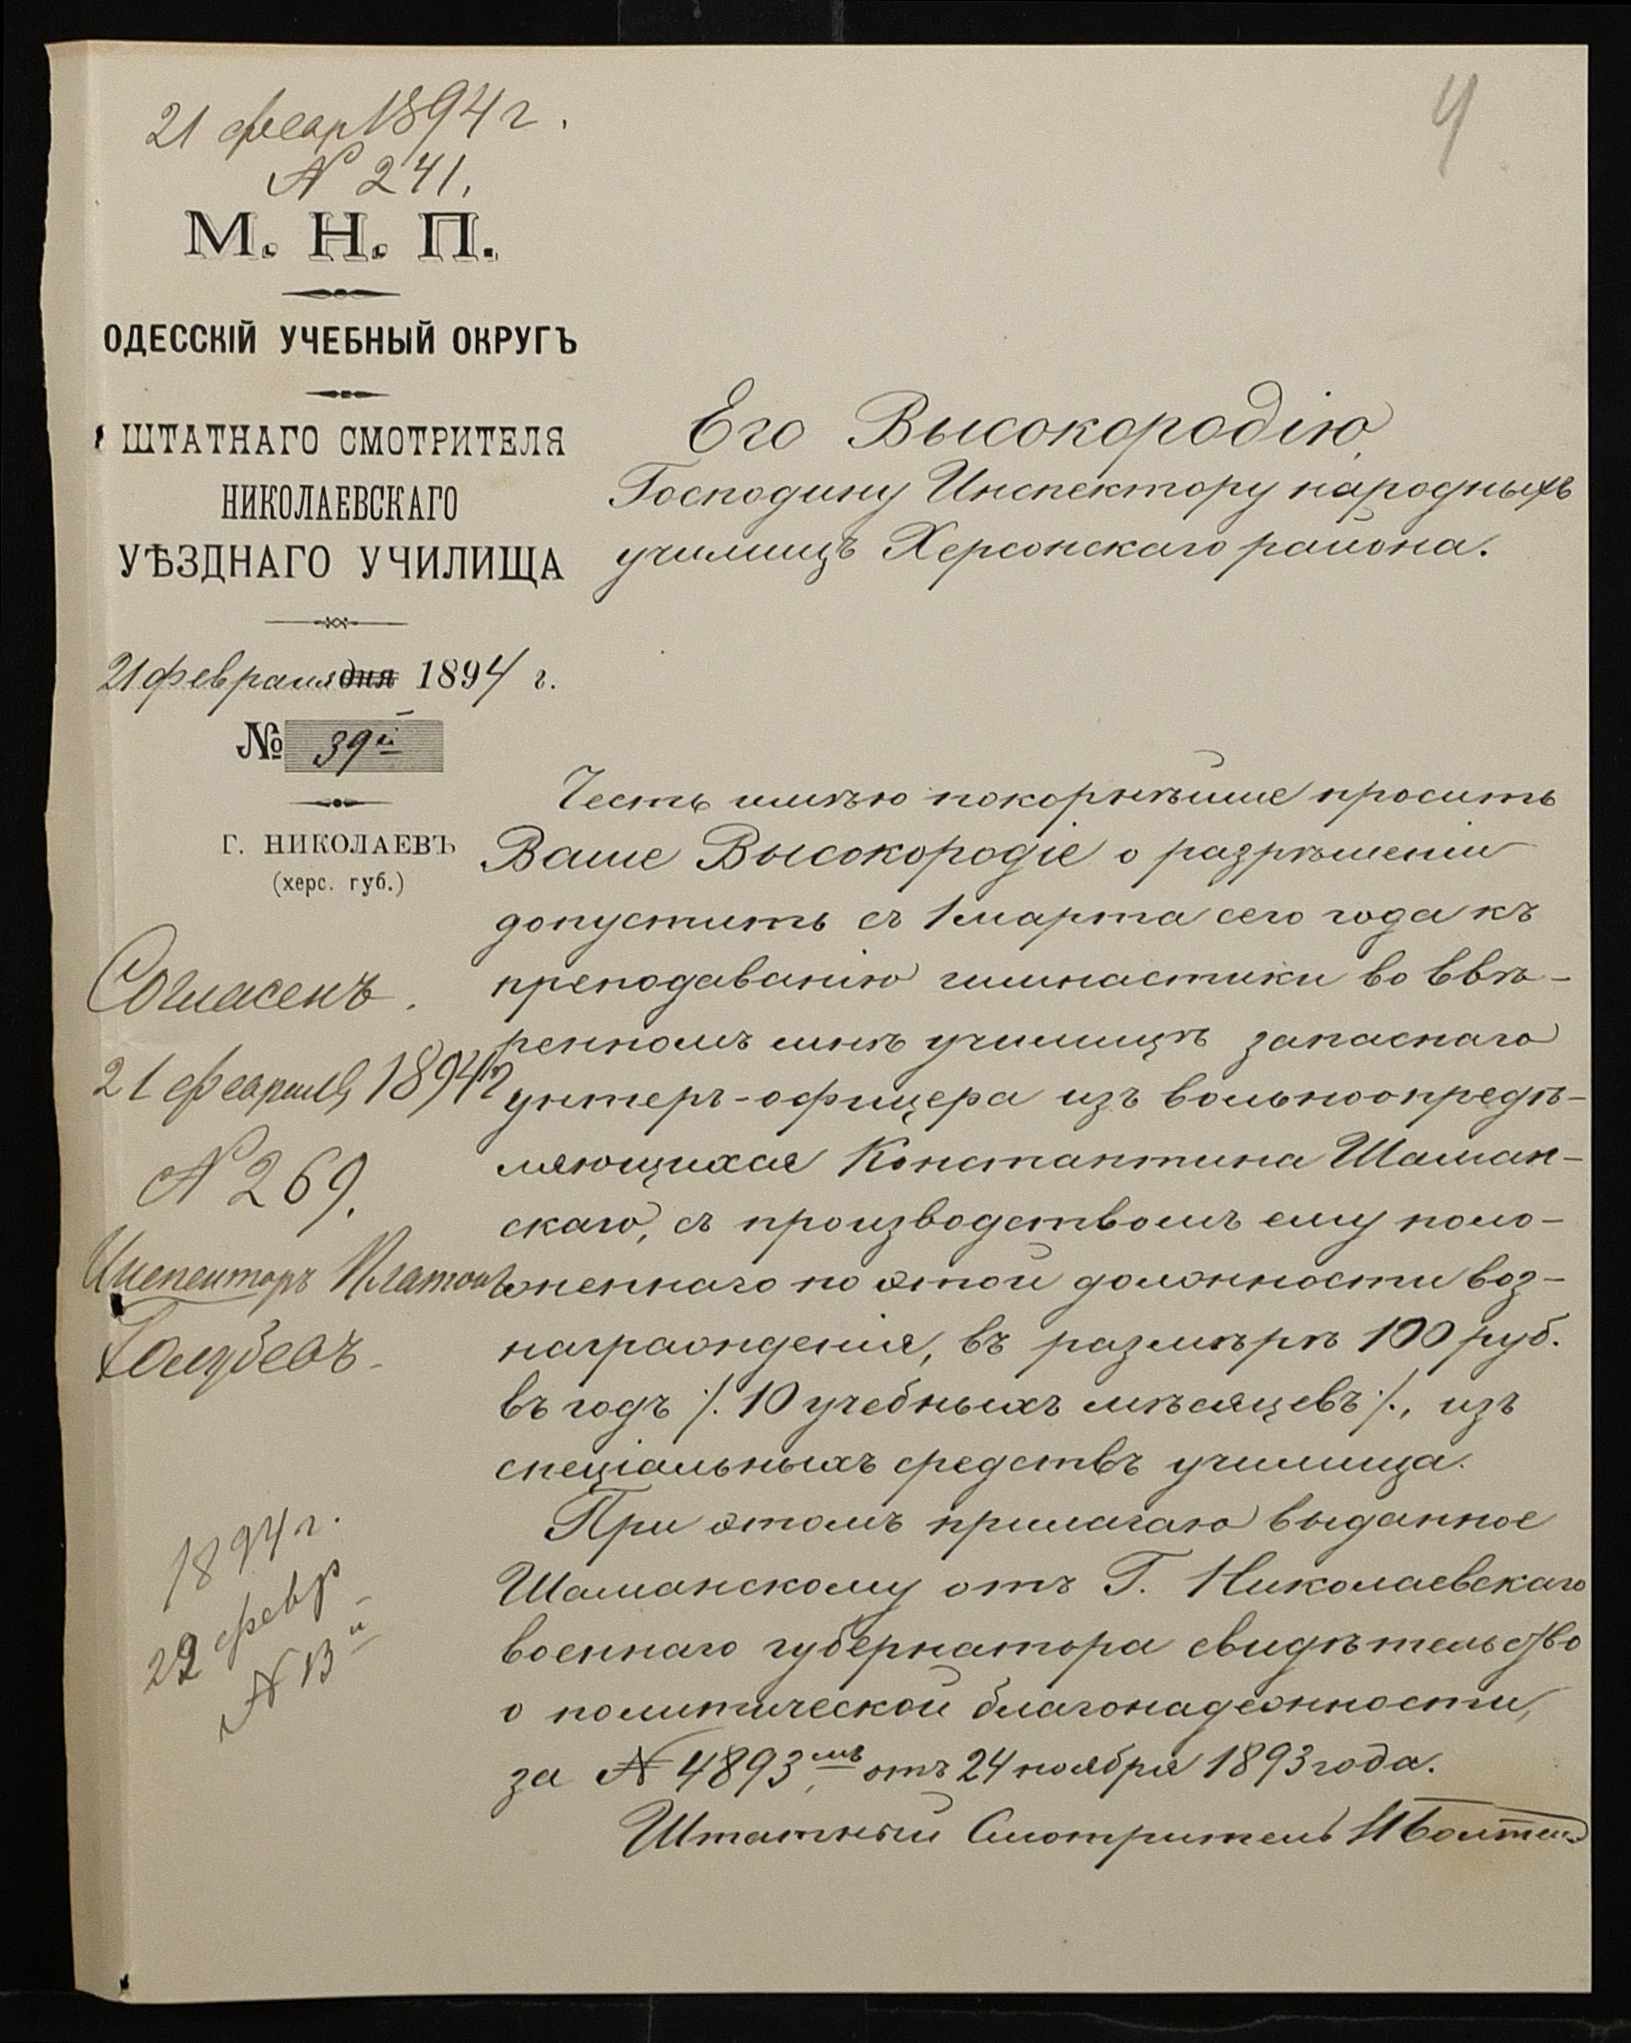 21 февр 1894 г.
№ 241.
М. Н. П.
ОДЕССКІЙ УЧЕБНЫЙ ОКРУГЪ
ШТАТНАГО СМОТРИТЕЛЯ
НИКОЛАЕВСКАГО
УѢЗДНАГО УЧИЛИЩА
21 февраля дня 1894 г.
№ 39й
Г. НИКОЛАЕВЪ
(херс. губ.)
Согласенъ.
21 февраля 1894 г
№ 269.
Инспекторъ Платонъ
Голубевъ
1894 г.
22 февр
№ 13й
4
Его Высокородію,
Господину Инспектору народныхъ
училищъ Херсонскаго района.
Честь имѣю покорнѣйше просить
Ваше Высокородіе о разрѣшеніи
допустить съ 1 марта сего года къ
преподаванію гимнастики во ввѣ-
ренномъ мнѣ училищѣ запаснаго
унтеръ-офицера изъ вольноопредѣ-
ляющихся Константина Шаман-
скаго, съ производствомъ ему поло-
женнаго по этой должности воз-
награжденія, въ размѣрѣ 100 руб.
въ годъ /. 10 учебныхъ мѣсяцевъ /., изъ
спеціальныхъ средствъ училища.
При этомъ прилагаю выданное
Шаманскому отъ Г. Николаевскаго
военнаго губернатора свидѣтельство
о политической благонадежности,
за № 4893мъ, отъ 24 ноября 1893 года.
Штатный Смотритель